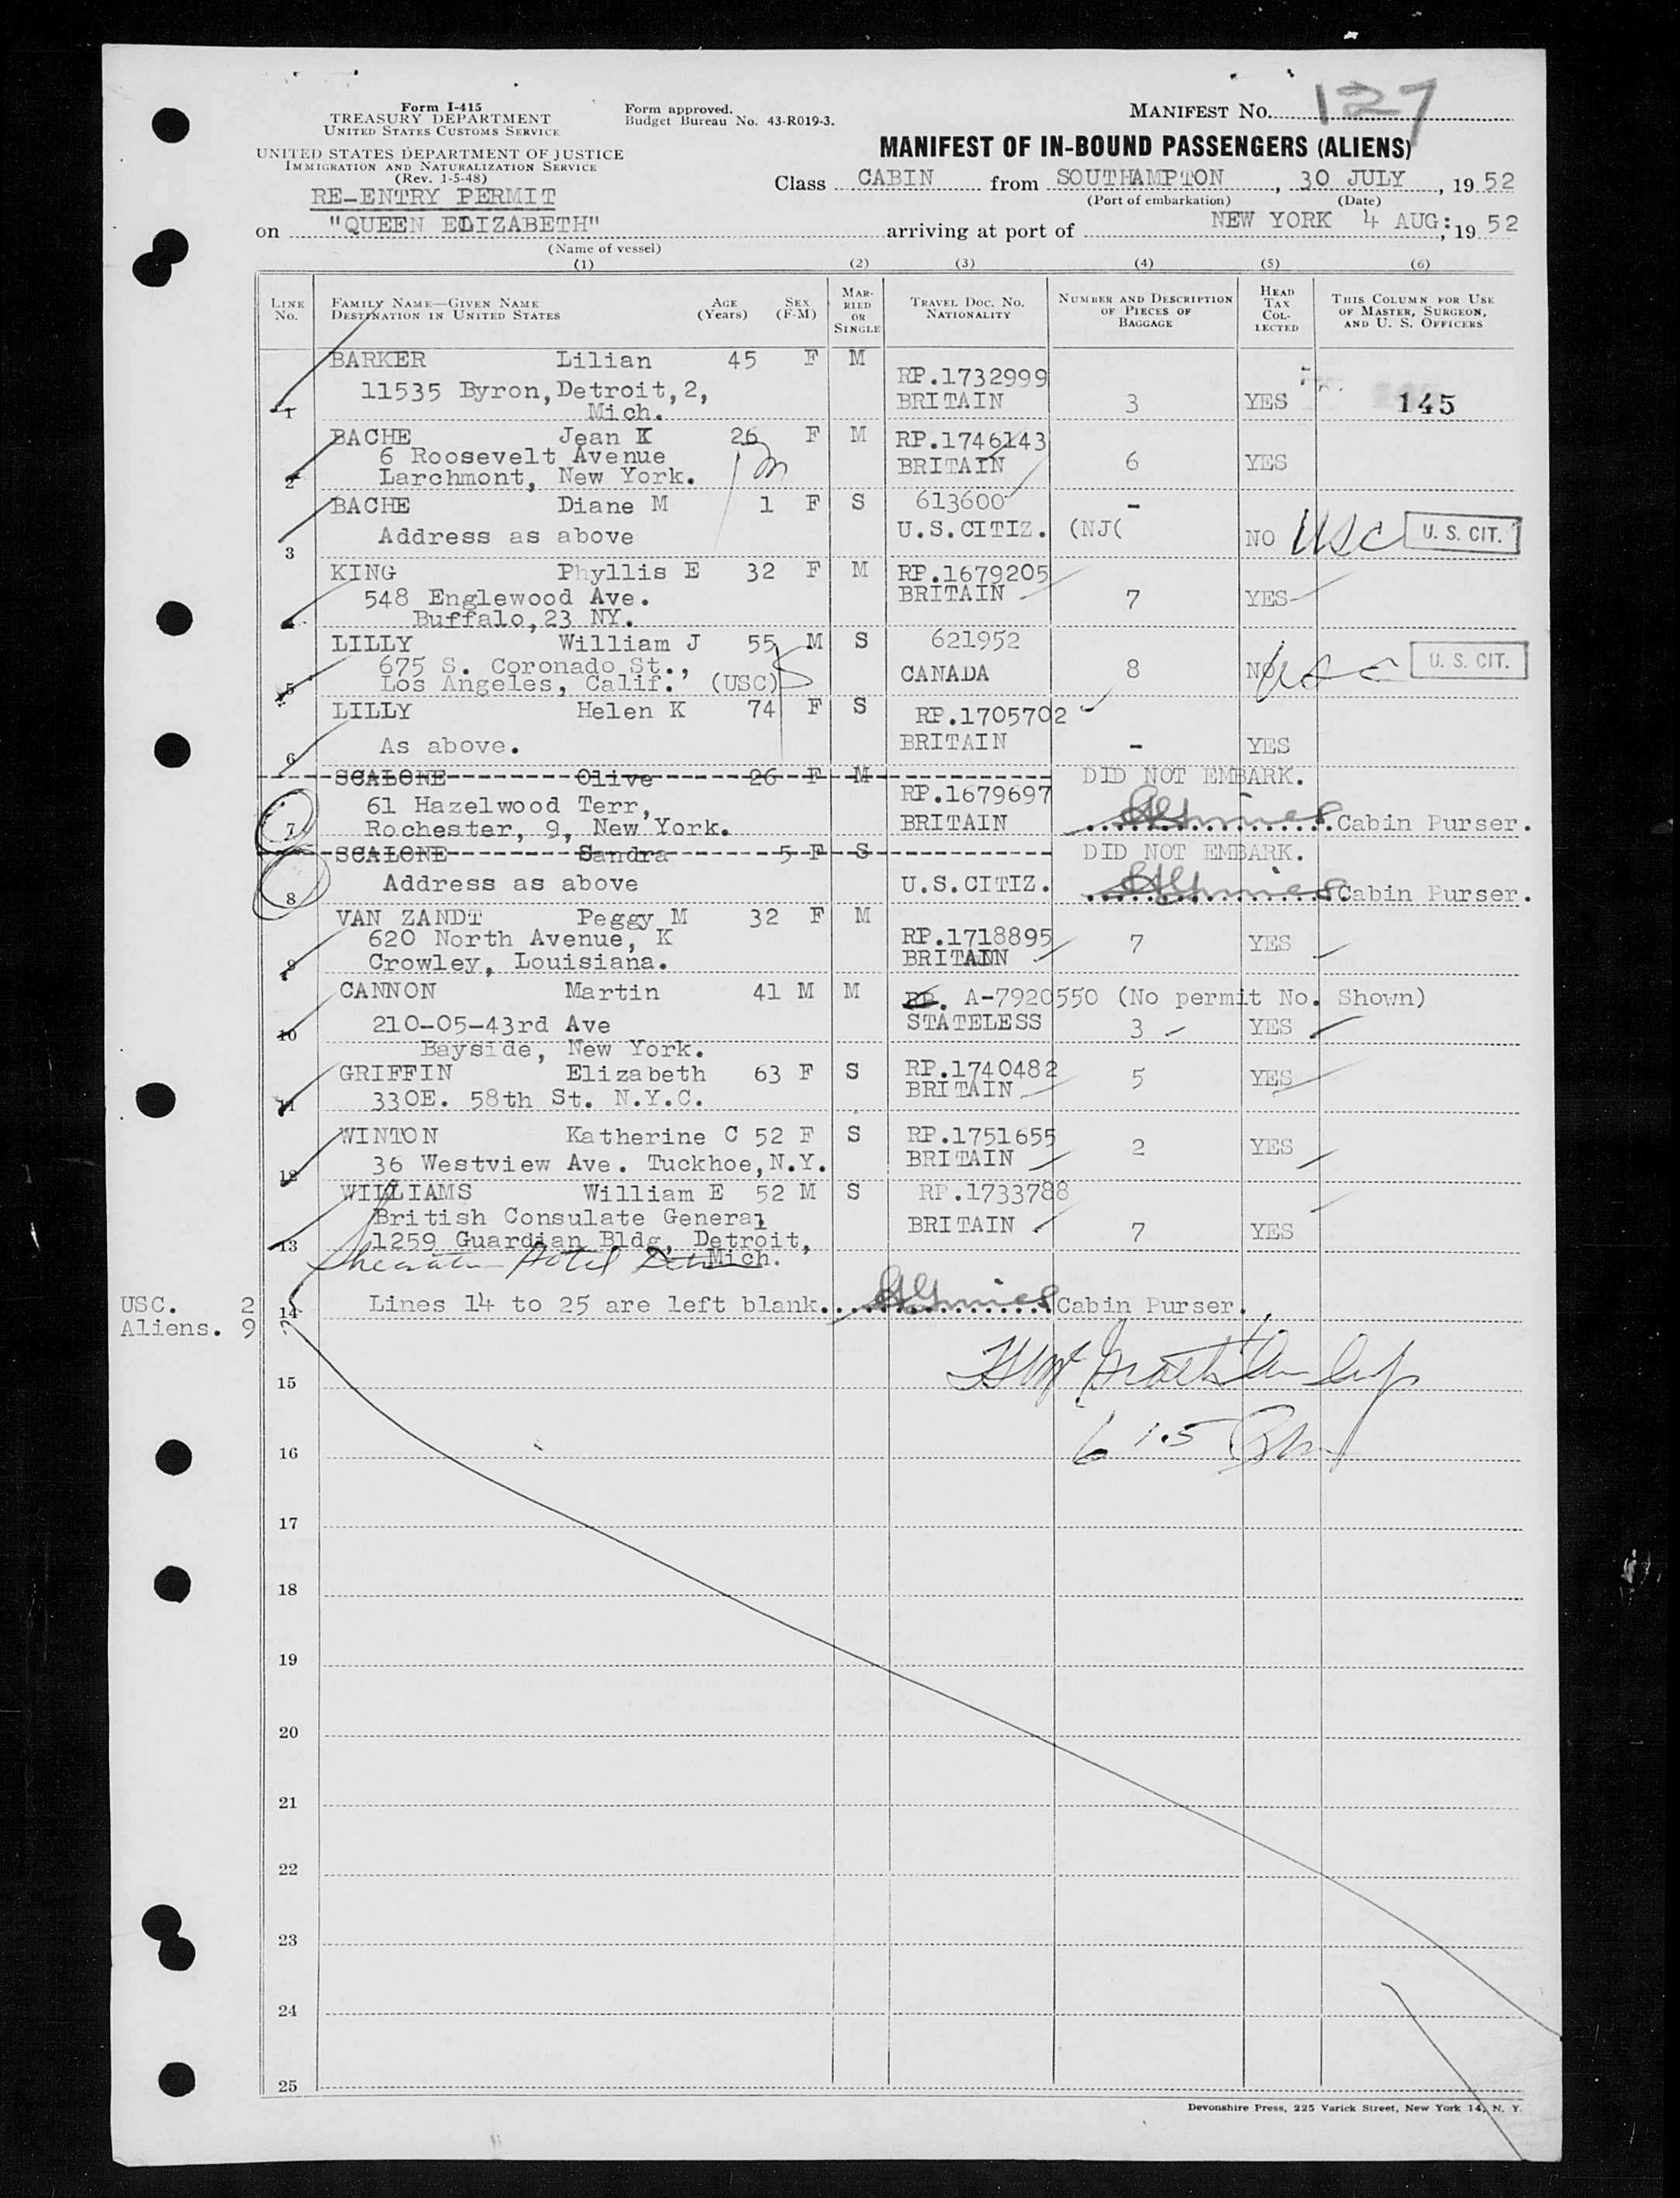 Form I-415
TREASURY DEPARTMENT
UNITED STATES CUSTOMS SERVICE
Form approved.
Budget Bureau No. 43-R019-3.
MANIFEST NO. 127
UNITED STATES DEPARTMENT OF JUSTICE
IMMIGRATION AND NATURALIZATION SERVICE
(Rev. 1-5-48)
MANIFEST OF IN-BOUND PASSENGERS (ALIENS)
RE-ENTRY PERMIT
Class CABIN from SOUTHAMPTON, 30 JULY, 1952
(Port of embarkation) (Date)
on "QUEEN ELIZABETH" arriving at port of NEW YORK 4 AUG:, 1952
(Name of vessel)
(1) (2) (3) (4) (5) (6)
LINE No.
FAMILY NAME—GIVEN NAME
DESTINATION IN UNITED STATES
AGE (Years)
SEX (F-M)
MARRIED OR SINGLE
TRAVEL DOC. NO. NATIONALITY
NUMBER AND DESCRIPTION OF PIECES OF BAGGAGE
HEAD TAX COLLECTED
THIS COLUMN FOR USE OF MASTER, SURGEON, AND U. S. OFFICERS
BARKER Lilian 45 F M
RP.1732999
11535 Byron, Detroit, 2,
1 Mich. BRITAIN 3 YES 145
BACHE Jean K 26 F M RP.1746143
6 Roosevelt Avenue BRITAIN 6 YES
2 Larchmont, New York.
BACHE Diane M 1 F S 613600 -
3 Address as above U.S.CITIZ. (NJ( NO USC U. S. CIT.
KING Phyllis E 32 F M RP.1679205
548 Englewood Ave. BRITAIN 7 YES
4 Buffalo, 23 NY.
LILLY William J 55 M S 621952
675 S. Coronado St., CANADA 8 NO USC U. S. CIT.
5 Los Angeles, Calif. (USC)
LILLY Helen K 74 F S RP.1705702
6 As above. BRITAIN - YES
SCALONE Olive 26 F M DID NOT EMBARK.
61 Hazelwood Terr, RP.1679697
7 Rochester, 9, New York. BRITAIN Cabin Purser.
SCALONE Sandra 5 F S DID NOT EMBARK.
8 Address as above U.S.CITIZ. Cabin Purser.
VAN ZANDT Peggy M 32 F M
620 North Avenue, K RP.1718895 7 YES
9 Crowley, Louisiana. BRITAIN
CANNON Martin 41 M M RP. A-7920550 (No permit No. Shown)
10 210-05-43rd Ave STATELESS 3 YES
Bayside, New York.
GRIFFIN Elizabeth 63 F S RP.1740482 5 YES
11 330E. 58th St. N.Y.C. BRITAIN
WINTON Katherine C 52 F S RP.1751655 2 YES
12 36 Westview Ave. Tuckhoe, N.Y. BRITAIN
WILLIAMS William E 52 M S RP.1733788
British Consulate General BRITAIN 7 YES
13 1259 Guardian Bldg, Detroit,
Mich.
Hotel
USC. 2
14 Lines 14 to 25 are left blank. Cabin Purser.
Aliens. 9
15
16
17
18
19
20
21
22
23
24
25
Devonshire Press, 225 Varick Street, New York 14, N. Y.